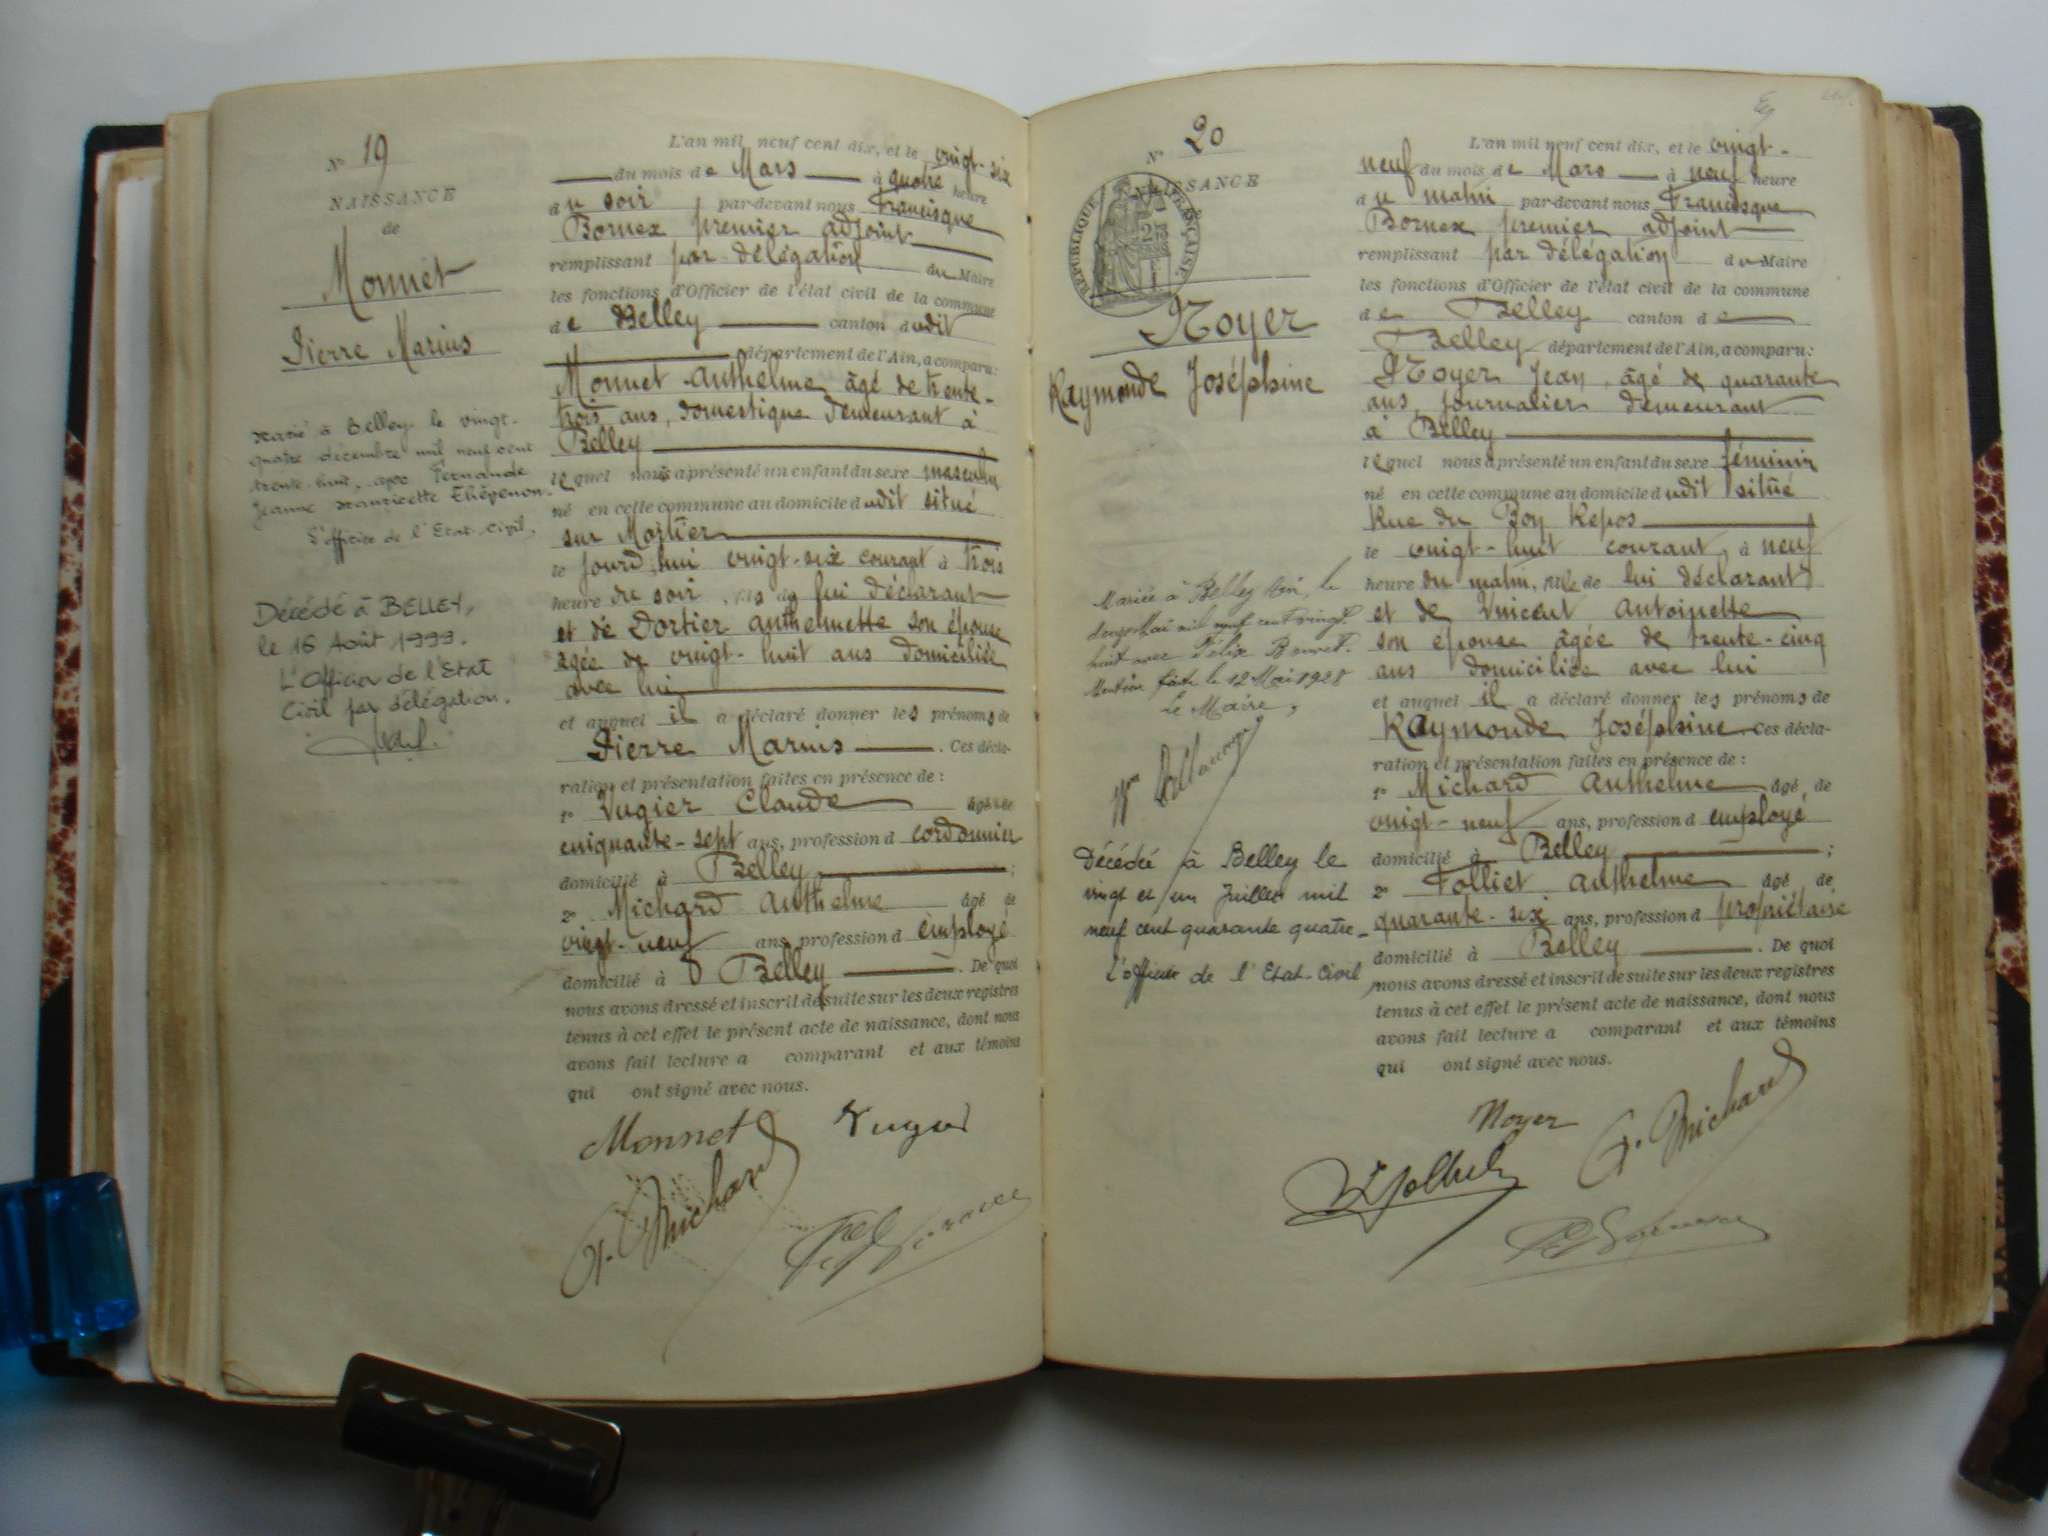 N° 19
NAISSANCE
de
Monnet
Pierre Marius
Marié à Belley le vingt-
quatre décembre mil neuf cent
trente-huit, avec Fernande
Jeanne Mauricette Thépenon.
L'officier de l'Etat-Civil,
Décédé à BELLEY,
le 16 Août 1999.
L'Officier de l'Etat
Civil par délégation.
L'an mil neuf cent dix, et le vingt-six
du mois de Mars à quatre heure
du soir par-devant nous Francisque
Bornex premier adjoint
remplissant par délégation du Maire
les fonctions d'Officier de l'état civil de la commune
de Belley canton dudit
département de l'Ain, a comparu:
Monnet Anthelme âgé de trente-
trois ans, domestique demeurant à
Belley
lequel nous a présenté un enfant du sexe masculin
né en cette commune au domicile dudit situé
sur Mortier
le jourd'hui vingt-six courant à trois
heure du soir, fils de lui déclarant
et de Dortier Anthelmette son épouse
âgée de vingt-huit ans domiciliée
avec lui
et auquel il a déclaré donner les prénoms de
Pierre Marius . Ces décla-
ration et présentation faites en présence de :
1° Vugier Claude âgé de
cinquante-sept ans, profession d cordonnier
domicilié à Belley ;
2° Michard Anthelme âgé de
vingt-neuf ans, profession d employé
domicilié à Belley . De quoi
nous avons dressé et inscrit de suite sur les deux registres
tenus à cet effet le présent acte de naissance, dont nous
avons fait lecture a comparant et aux témoins
qui ont signé avec nous.
Monnet Vugier
A. Michard
N° 20
NAISSANCE
RÉPUBLIQUE FRANÇAISE
Noyer
Raymonde Joséphine
Mariée à Belley Ain, le
douze Mai mil neuf cent vingt-
huit avec Félix Brunet.
Mention faite le 12 Mai 1928
Le Maire,
Décédée à Belley le
vingt et un Juillet mil
neuf cent quarante quatre-
L'officier de l'Etat-Civil
L'an mil neuf cent dix, et le vingt-
neuf du mois de Mars à neuf heure
du matin par-devant nous Francisque
Bornex premier adjoint
remplissant par délégation du Maire
les fonctions d'Officier de l'état civil de la commune
de Belley canton de
Belley département de l'Ain, a comparu:
Noyer Jean, âgé de quarante
ans, journalier demeurant
à Belley
lequel nous a présenté un enfant du sexe féminin
né en cette commune au domicile dudit situé
Rue du Bon Repos
le vingt-huit courant, à neuf
heure du matin, fille de lui déclarant
et de Vincent Antoinette
son épouse âgée de trente-cinq
ans domiciliée avec lui
et auquel il a déclaré donner les prénoms de
Raymonde Joséphine. Ces décla-
ration et présentation faites en présence de :
1° Michard Anthelme âgé de
vingt-neuf ans, profession d employé
domicilié à Belley ;
2° Folliet Anthelme âgé de
quarante-six ans, profession d propriétaire
domicilié à Belley . De quoi
nous avons dressé et inscrit de suite sur les deux registres
tenus à cet effet le présent acte de naissance, dont nous
avons fait lecture a comparant et aux témoins
qui ont signé avec nous.
Noyer A. Michard